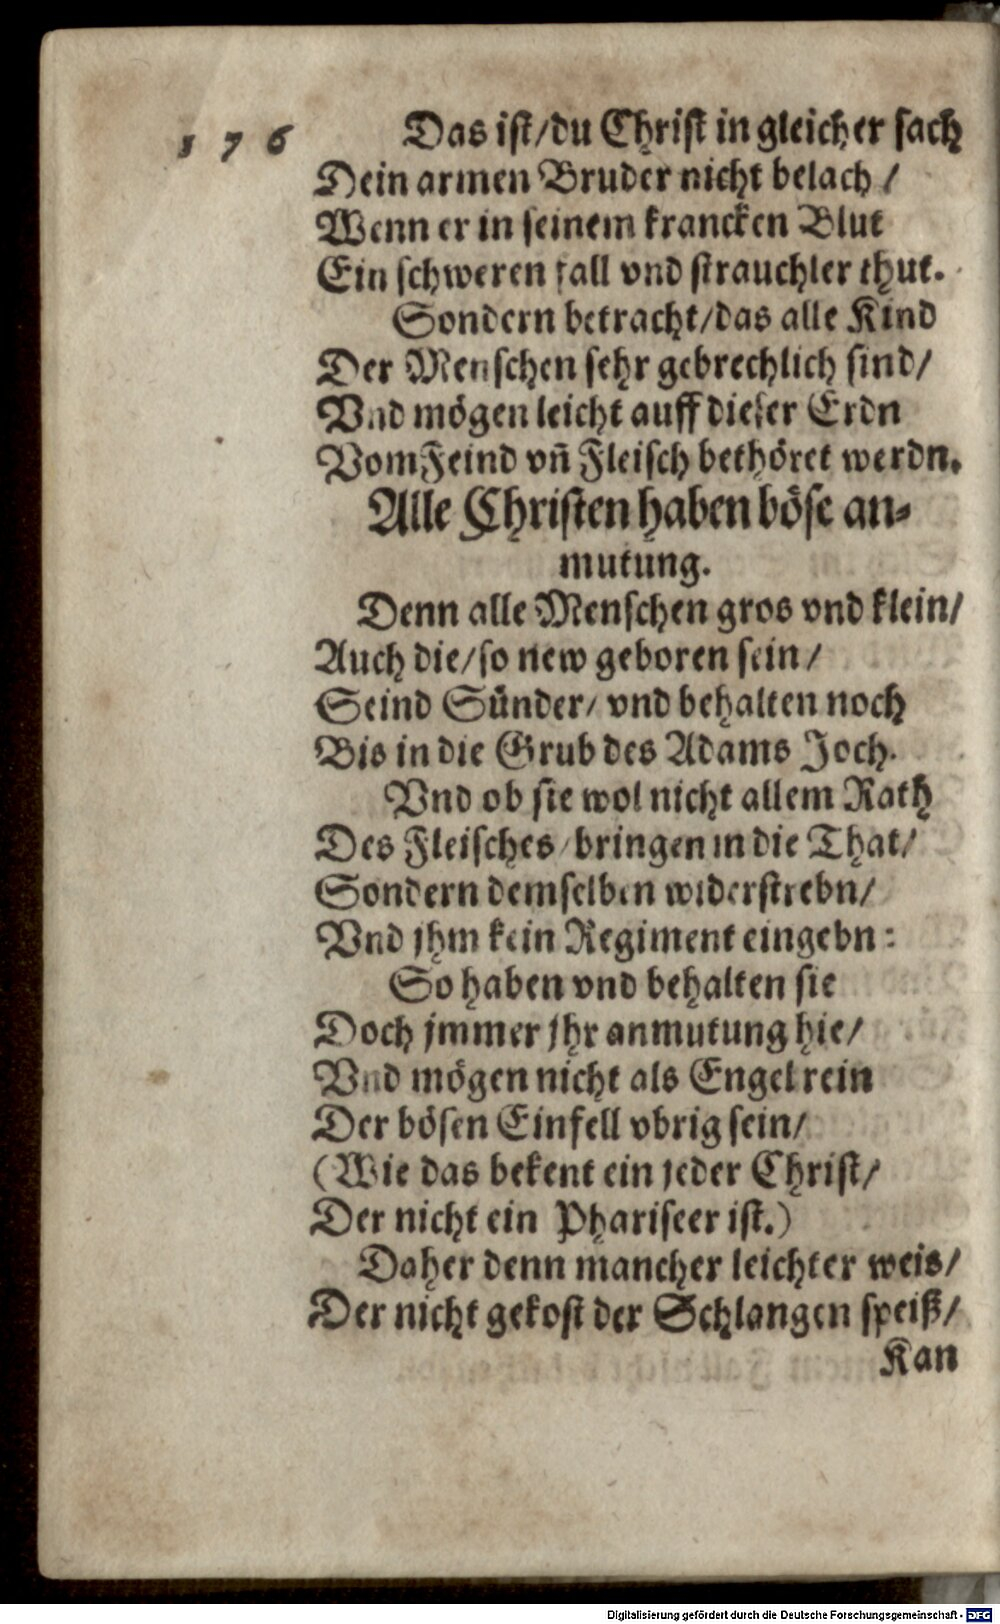 176
Das ist/du Christ in gleicher sach
Dein armen Bruder nicht belach/
Wenn er in seinem krancken Blut
Ein schweren fall vnd strauchler thut.
Sondern betracht/das alle Kind
Der Menschen sehr gebrechlich sind/
Vnd mögen leicht auff dieser Erdn
Vom Feind vn̄ Fleisch bethöret werdn.
Alle Christen haben böse an-
mutung.
Denn alle Menschen gros vnd klein/
Auch die/so new geboren sein/
Seind Sünder/ vnd behalten noch
Bis in die Grub des Adams Joch.
Vnd ob sie wol nicht allem Rath
Des Fleisches/bringen in die That/
Sondern demselben widerstrebn/
Vnd jhm kein Regiment eingebn:
So haben vnd behalten sie
Doch jmmer jhr anmutung hie/
Vnd mögen nicht als Engel rein
Der bösen Einfell vbrig sein/
(Wie das bekent ein jeder Christ/
Der nicht ein Phariseer ist.)
Daher denn mancher leichter weis/
Der nicht gekost der Schlangen speiß/
Kan
Digitalisierung gefördert durch die Deutsche Forschungsgemeinschaft - DFG